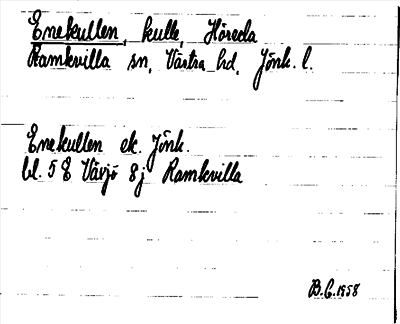 Enekullen, kulle, Höreda
Ramkvilla sn, Västra hd, Jönk. l.
Enekullen ek. Jönk.
bl. 5 E Vävjö 8j Ramkvilla
B.G. 1958